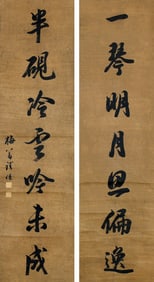 一琴明月思偏逸
半硯冷雲吟未成